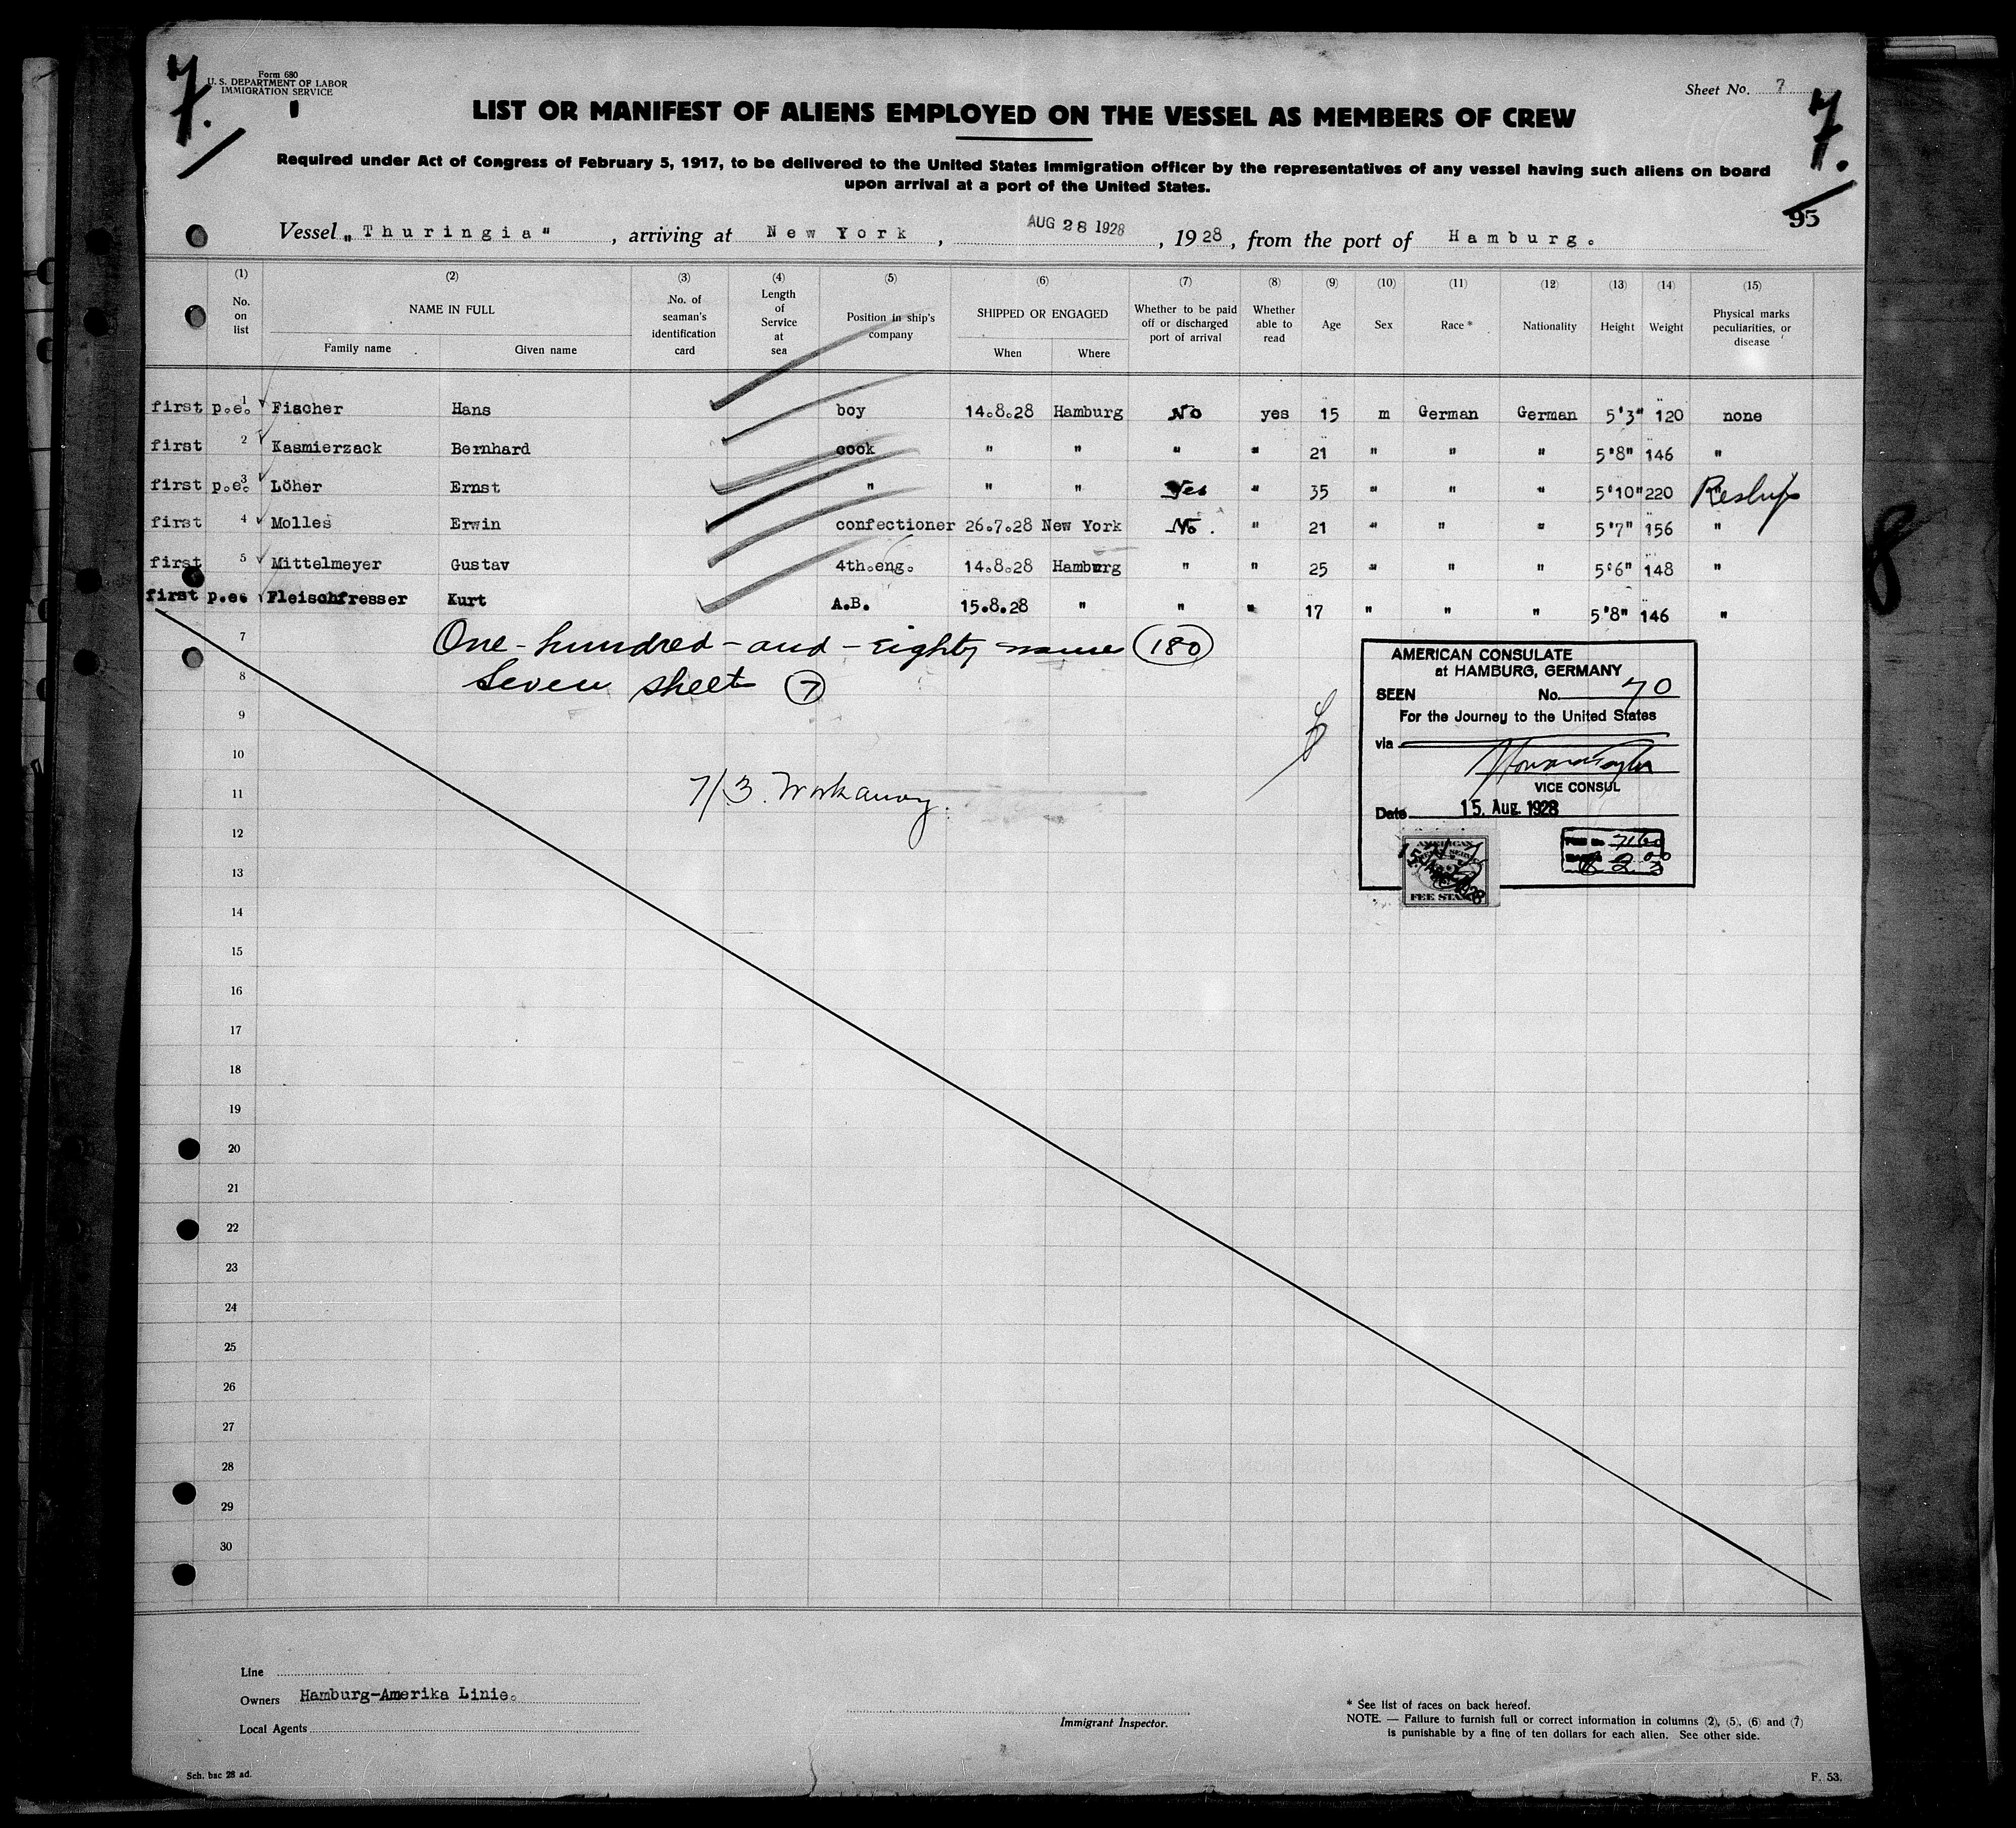 7.
Form 680
U. S. DEPARTMENT OF LABOR
IMMIGRATION SERVICE
Sheet No. 7
7.
LIST OR MANIFEST OF ALIENS EMPLOYED ON THE VESSEL AS MEMBERS OF CREW
Required under Act of Congress of February 5, 1917, to be delivered to the United States immigration officer by the representatives of any vessel having such aliens on board
upon arrival at a port of the United States.
95
Vessel „Thuringia", arriving at New York, AUG 28 1928, 1928, from the port of Hamburg.
(1) No. on list
(2) NAME IN FULL Family name Given name
(3) No. of seaman's identification card
(4) Length of Service at sea
(5) Position in ship's company
(6) SHIPPED OR ENGAGED When Where
(7) Whether to be paid off or discharged port of arrival
(8) Whether able to read
(9) Age
(10) Sex
(11) Race *
(12) Nationality
(13) Height
(14) Weight
(15) Physical marks peculiarities, or disease
first p.e. 1 Fischer Hans boy 14.8.28 Hamburg No yes 15 m German German 5'3" 120 none
first 2 Kasmierzack Bernhard cook " " " " 21 " " " 5'8" 146 "
first p.e. 3 Löher Ernst " " " Yes " 35 " " " 5'10" 220 "
first 4 Molles Erwin confectioner 26.7.28 New York No. " 21 " " " 5'7" 156 "
first 5 Mittelmeyer Gustav 4th.eng. 14.8.28 Hamburg " " 25 " " " 5'6" 148 "
first p.e. Fleischfresser Kurt A.B. 15.8.28 " " " 17 " " " 5'8" 146 "
7 One-hundred-and-eighty names 180
8 Seven sheets 7
9
10
11 7/3. Workaway.
12
13
14
15
16
17
18
19
20
21
22
23
24
25
26
27
28
29
30
AMERICAN CONSULATE
at HAMBURG, GERMANY
SEEN No. 70
For the Journey to the United States
via
VICE CONSUL
Date 15. Aug. 1928
7160
FEE STAMP
8
Line
Owners Hamburg-Amerika Linie.
Local Agents
Immigrant Inspector.
* See list of races on back hereof.
NOTE. — Failure to furnish full or correct information in columns (2), (5), (6) and (7)
is punishable by a fine of ten dollars for each alien. See other side.
Sch. bac 28 ad.
F. 53.